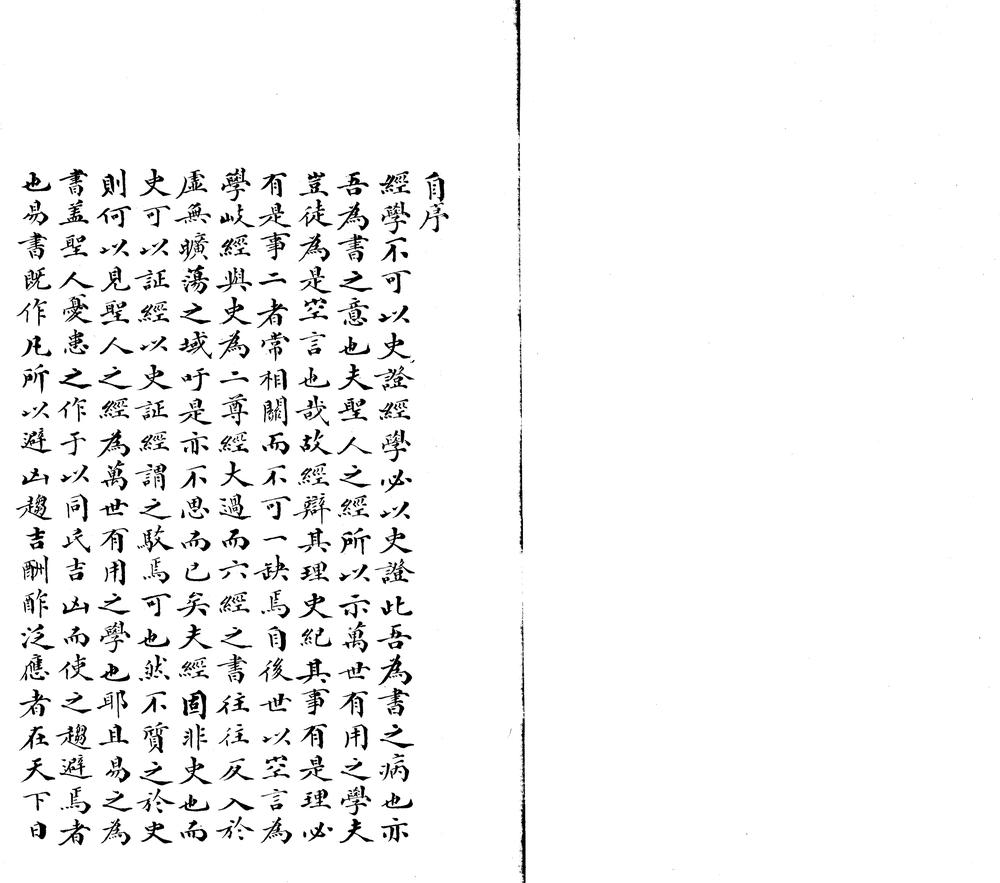 自序
經學不可以史證經學必以史證此吾為書之病也亦
吾為書之意也夫聖人之經所以示萬世有用之學夫
豈徒為是空言也哉故經辯其理史紀其事有是理必
有是事二者常相關而不可一缺焉自後世以空言為
學岐經與史為二尊經大過而六經之書往往反入於
虛無曠蕩之域吁是亦不思而已矣夫經固非史也而
史可以証經以史証經謂之駁焉可也然不質之於史
則何以見聖人之經為萬世有用之學也耶且易之為
書葢聖人憂患之作于以同民吉凶而使之趨避焉者
也易書既作凡所以避凶趨吉酬酢泛應者在天下日